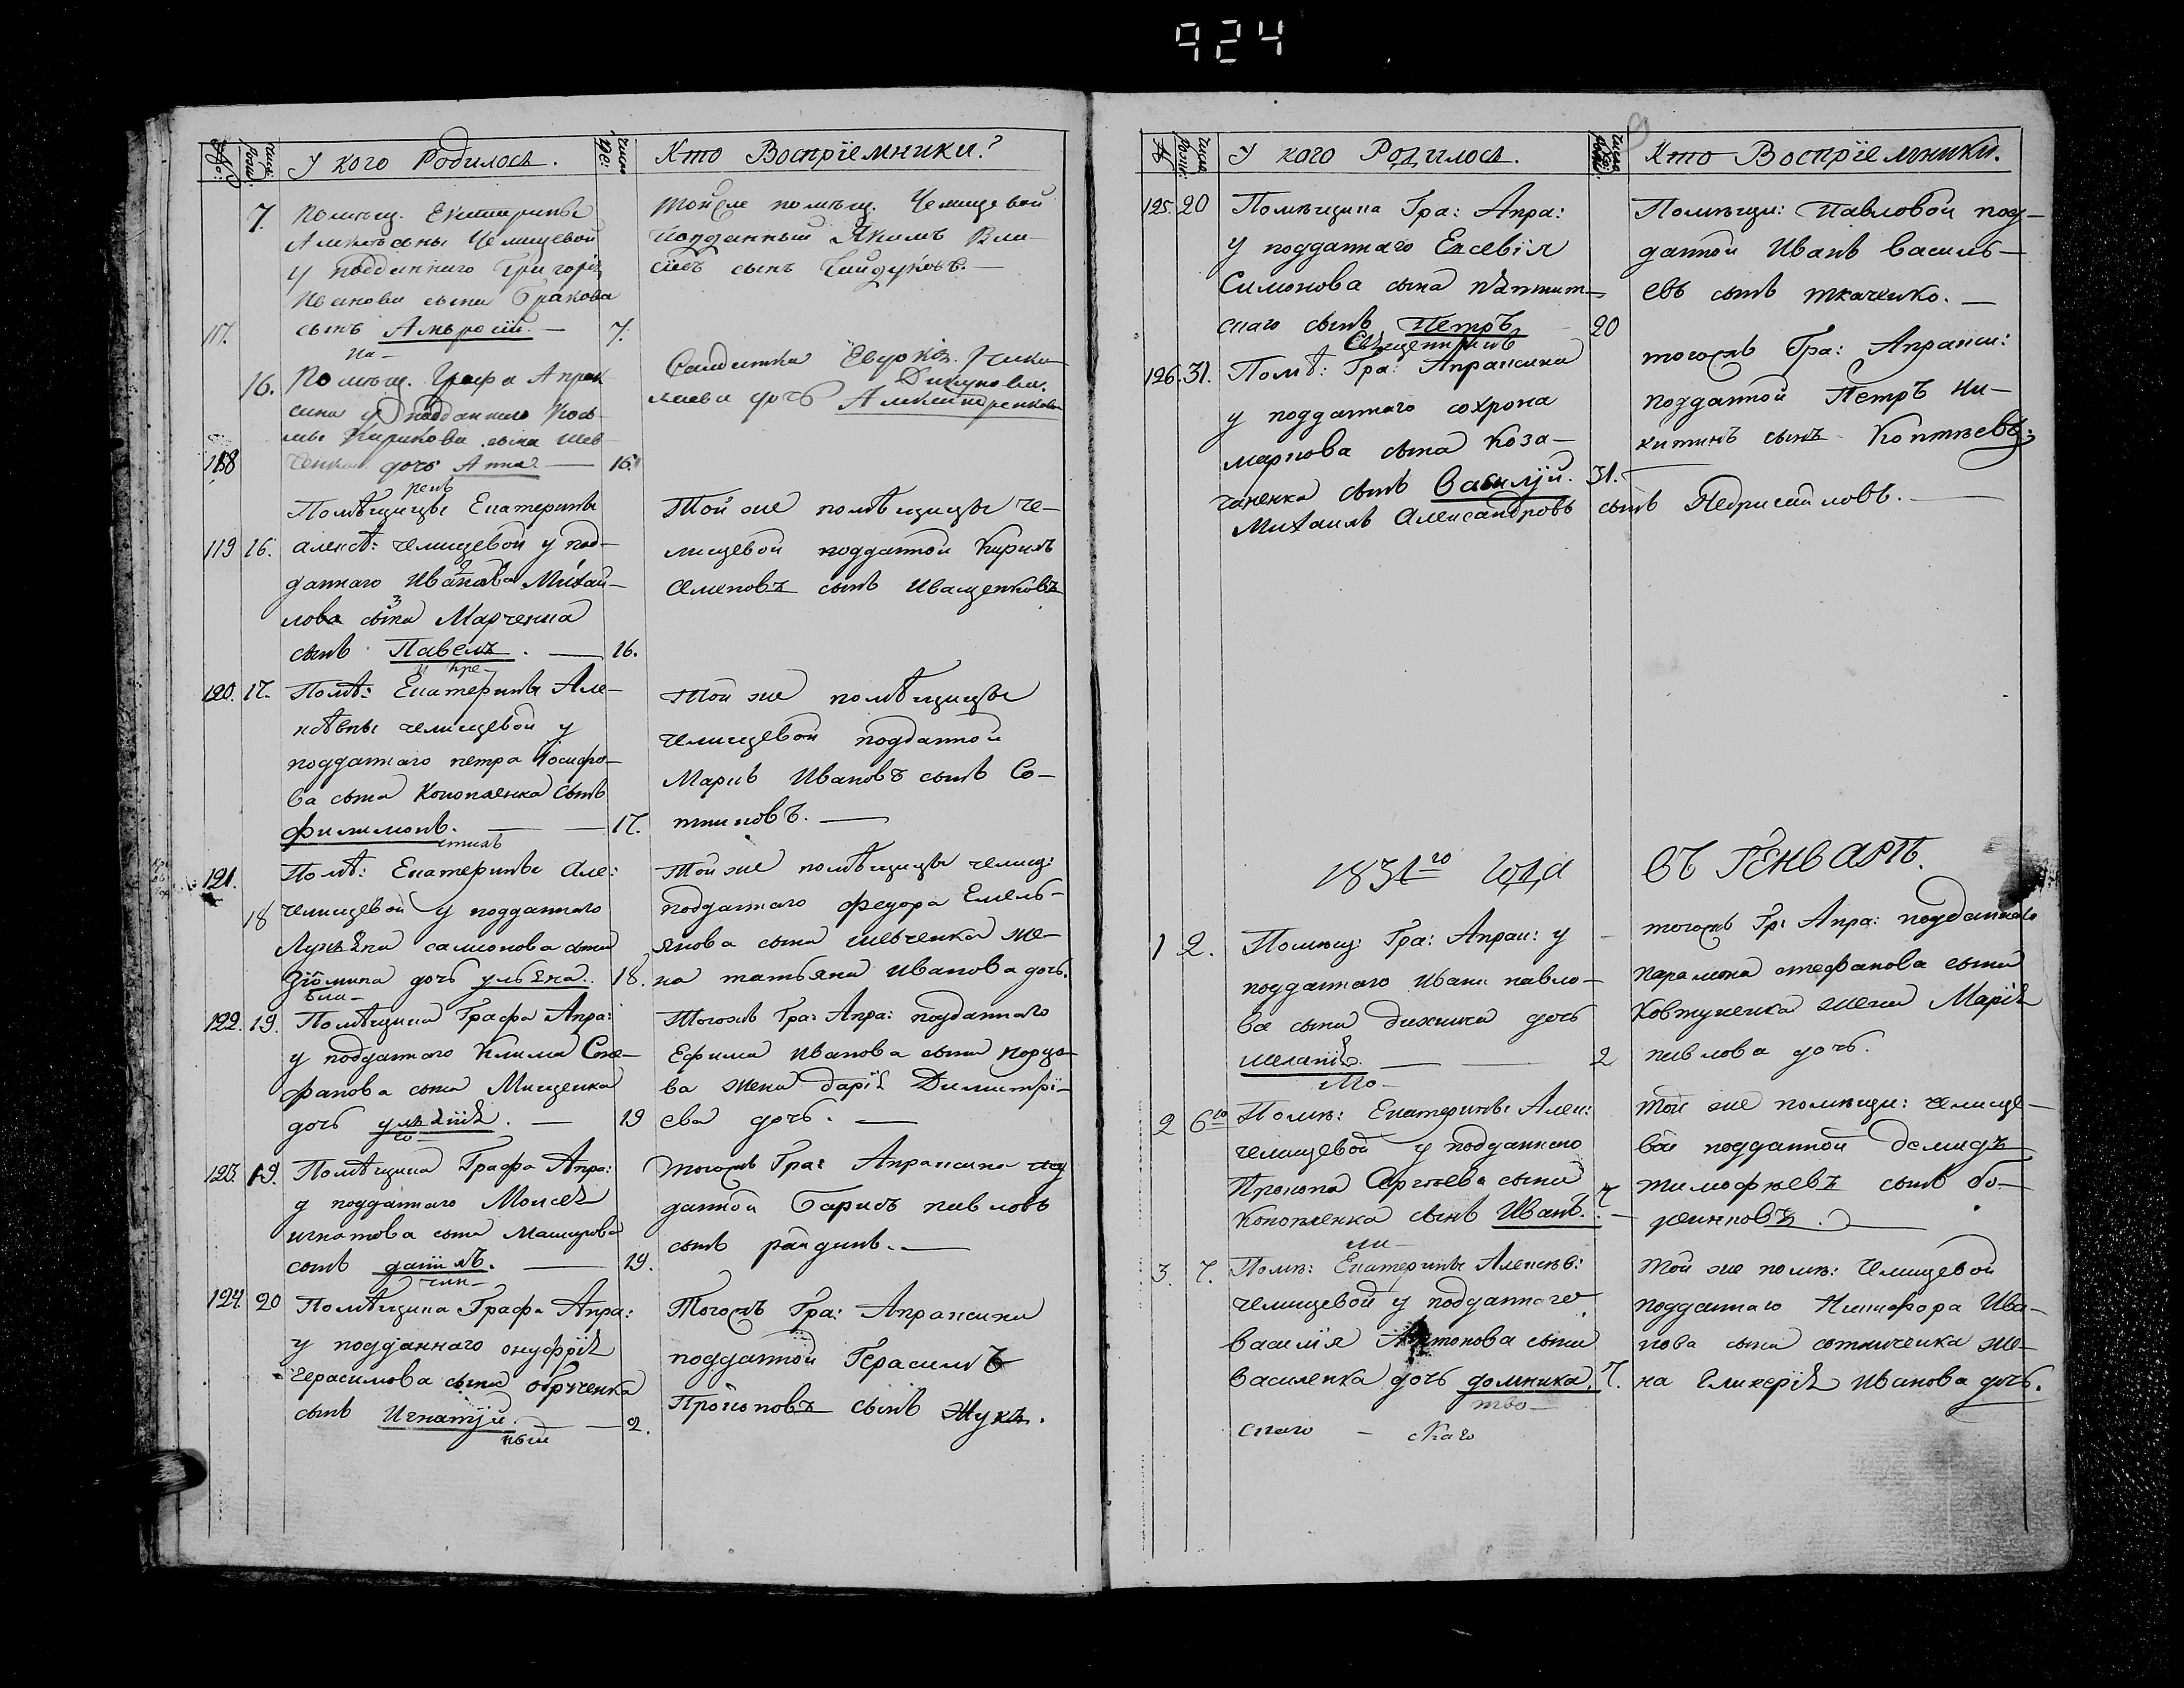 924
№
У кого Родилось.
Число
Кто Воспріемники?
7.
помѣщ. Екатерины
Алексѣевны Челищевой
у подданнаго Григорія
Иванова сына Бракова
117.
сынъ Амвросій. — 7.
тойже помѣщ. Челищевой
подданный Якимъ
сынъ
на-
16.
Помѣщ. Графа Апрак
сина у подданнаго Кось
мы Кирикова сына Шев
118
ченка дочъ Анна — 16.
Салдатка Евдокія
дочъ
рень
Помѣщицы Екатерины
119 16. алексѣ: челищевой у под-
даннаго Иванова Михай-
лова сына Марченка
сынъ Павелъ. — 16.
Той же помѣщицы че-
лищевой подданной Кирилъ
Семеновъ сынъ Иващенковъ
и кре-
120. 17. Помѣ: Екатерины Але-
ксѣвны челищевой у
подданнаго петра Іосифо-
ва сына Конопленка сынъ
филимонъ. — — 17.
Той же помѣщицы
челищевой подданной
Маркъ Ивановъ сынъ Со-
тниковъ. —
стилъ
121.
Помѣ: Екатерины Але:
18 Челищевой у подданнаго
Лукьяна самсонова сына
дочъ ульяна. 18.
Той же помѣщицы челищ:
подданнаго федора Емель-
янова сына шевченка же-
на татьяна Иванова дочъ.
бла-
122. 19. Помѣщика Графа Апра:
у подданнаго Клима Сте-
фанова сына Мищенка
дочъ ульянія. — 19
Тогожъ Гра: Апра: подданнаго
Ефима Иванова сына
ва жена дарія Димитрі-
ева дочъ. —
го-
123. 19. Помѣщика Графа Апра:
у подданнаго Моисея
игнатова сына Машурова
сынъ даніилъ. — 19.
тогожъ Гра: Апраксина под
данной Барисъ павловъ
сынъ райдинъ. —
чин-
124. 20 Помѣщика Графа Апра:
у подданнаго онуфрія
Герасимова сына
сынъ Игнатій. — 2.
ный
Тогожъ Гра: Апраксина
подданной Герасимъ
Прокоповъ сынъ Жукъ.
№
У кого Родилось.
Кто Воспріемники.
125. 20 Помѣщика Гра: Апра:
у подданнаго Евсевія
Симонова сына пѣтнит-
скаго сынъ Петръ 20
Помѣщи: Павловой под-
данной Иванъ василь-
евъ сынъ ткаченко. —
Священникъ
126. 31. Помѣ: Гра: Апраксина
у подданнаго сохрона
маркова сына Коза-
ченка сынъ василій. 31.
тогожъ Гра: Апракси:
подданной Петръ Ни-
китинъ сынъ Коптѣевъ.
Михаилъ Александровъ сынъ Недрисайловъ. —
1831го года
въ ГЕНВАРѢ.
1 2. Помѣщ: Гра: Апрак: у
подданнаго Ивана павло-
ва сына дочъ
меланія. — — 2
тогожъ Гр: Апра: подданнаго
парамона стефанова сына
Ковтуненка жена Марія
павлова дочъ.
Мо-
2 6го Помѣ: Екатерины Алек:
челищевой у подданнаго
Прокопа Сергѣева сына
Конопленка сынъ Иванъ. 7
той же помѣщи: челище-
вой подданной демидъ
тимофѣевъ сынъ
ли-
3. 7. Помѣ: Екатерины Алексѣв:
челищевой у подданнаго
василія Антонова сына
василенка дочъ домника. 7.
той же помѣ: Челищевой
подданнаго Никифора Ива-
нова сына сотниченка же-
на Гликерія Иванова дочъ.
тво-
скаго